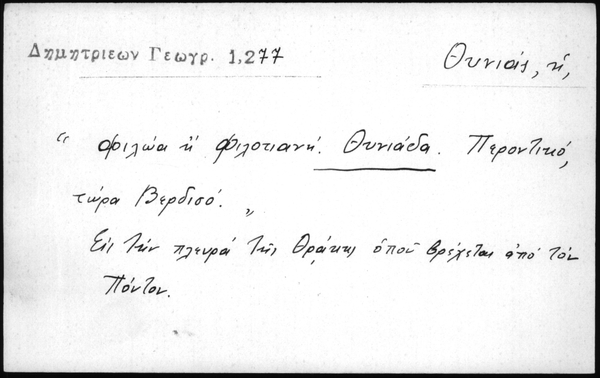 Δημητριεων Γεωγρ. 1,277
Θυνιάς, ἡ,
" Φιλώα ἢ Φιλοτιανή. Θυνιάδα. Περοντικό,
τώρα Βερδισό. "
Εἰς τὴν πλευρά τῆς Θράκης ὁποῦ βρέχεται ἀπό τόν
Πόντον.